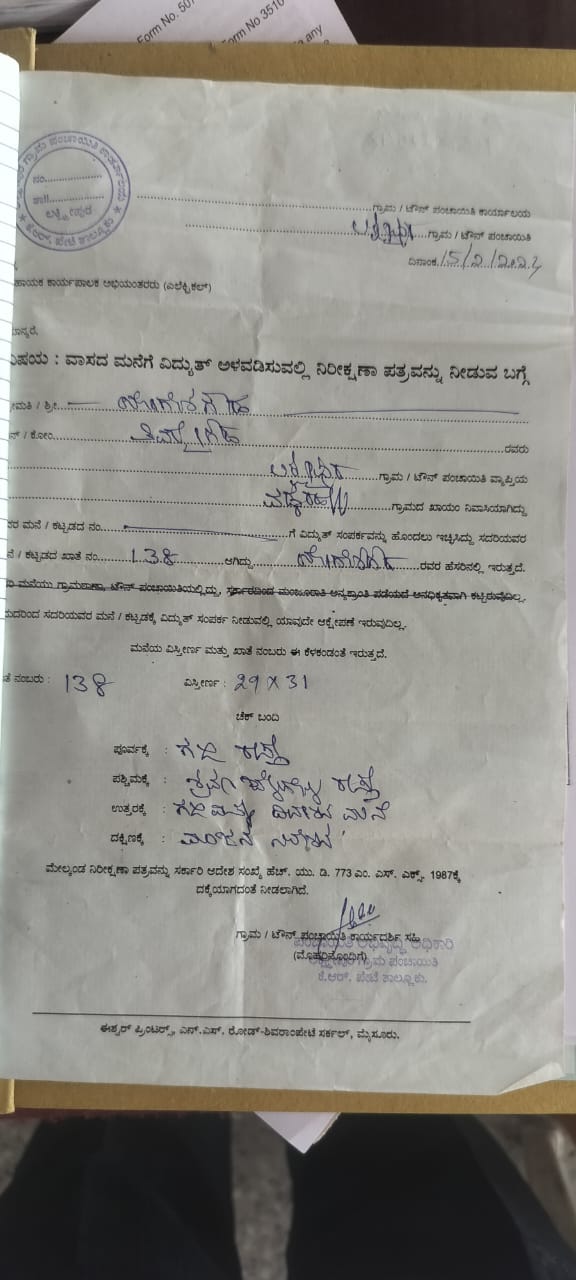 Form No. 507
Form No 3510
any
ಗ್ರಾಮ ಪಂಚಾಯಿತಿ ಕಾರ್ಯಾಲಯ
ನಂ.
ಲಕ್ಷ್ಮೀಪುರ
ಕೆ.ಆರ್. ಪೇಟೆ ತಾಲ್ಲೂಕು
ಗ್ರಾಮ / ಟೌನ್ ಪಂಚಾಯಿತಿ ಕಾರ್ಯಾಲಯ
ಲಕ್ಷ್ಮೀಪುರ ಗ್ರಾಮ / ಟೌನ್ ಪಂಚಾಯಿತಿ
ದಿನಾಂಕ 15/2/2024
ಹಾಯಕ ಕಾರ್ಯಪಾಲಕ ಅಭಿಯಂತರರು (ಎಲೆಕ್ಟ್ರಿಕಲ್)
ಮಾನ್ಯರೆ,
ವಿಷಯ : ವಾಸದ ಮನೆಗೆ ವಿದ್ಯುತ್ ಅಳವಡಿಸುವಲ್ಲಿ ನಿರೀಕ್ಷಣಾ ಪತ್ರವನ್ನು ನೀಡುವ ಬಗ್ಗೆ
ಶ್ರೀಮತಿ / ಶ್ರೀ.
ನ್ / ಕೋಂ. ರವರು
ಲಕ್ಷ್ಮೀಪುರ ಗ್ರಾಮ / ಟೌನ್ ಪಂಚಾಯಿತಿ ವ್ಯಾಪ್ತಿಯ
ಗ್ರಾಮದ ಖಾಯಂ ನಿವಾಸಿಯಾಗಿದ್ದು
ವರ ಮನೆ / ಕಟ್ಟಡದ ನಂ. ಗೆ ವಿದ್ಯುತ್ ಸಂಪರ್ಕವನ್ನು ಹೊಂದಲು ಇಚ್ಛಿಸಿದ್ದು ಸದರಿಯವರ
ನೆ / ಕಟ್ಟಡದ ಖಾತೆ ನಂ. 138 ಆಗಿದ್ದು, ರವರ ಹೆಸರಿನಲ್ಲಿ ಇರುತ್ತದೆ.
ಮನೆಯು ಗ್ರಾಮಠಾಣಾ, ಟೌನ್ ಪಂಚಾಯಿತಿಯಲ್ಲಿದ್ದು, ಸರ್ಕಾರದಿಂದ ಮಂಜೂರಾತಿ ಅನ್ಯಕ್ರಾಂತಿ ಪಡೆಯದೆ ಅನಧಿಕೃತವಾಗಿ ಕಟ್ಟಿರುವುದಿಲ್ಲ.
ದುದರಿಂದ ಸದರಿಯವರ ಮನೆ / ಕಟ್ಟಡಕ್ಕೆ ವಿದ್ಯುತ್ ಸಂಪರ್ಕ ನೀಡುವಲ್ಲಿ ಯಾವುದೇ ಆಕ್ಷೇಪಣೆ ಇರುವುದಿಲ್ಲ.
ಮನೆಯ ವಿಸ್ತೀರ್ಣ ಮತ್ತು ಖಾತೆ ನಂಬರು ಈ ಕೆಳಕಂಡಂತೆ ಇರುತ್ತದೆ.
ತೆ ನಂಬರು : 138 ವಿಸ್ತೀರ್ಣ : 29 x 31
ಚೆಕ್ ಬಂದಿ
ಪೂರ್ವಕ್ಕೆ : ರಸ್ತೆ
ಪಶ್ಚಿಮಕ್ಕೆ : ರಸ್ತೆ
ಉತ್ತರಕ್ಕೆ : ಮನೆ
ದಕ್ಷಿಣಕ್ಕೆ :
ಮೇಲ್ಕಂಡ ನಿರೀಕ್ಷಣಾ ಪತ್ರವನ್ನು ಸರ್ಕಾರಿ ಆದೇಶ ಸಂಖ್ಯೆ ಹೆಚ್. ಯು. ಡಿ. 773 ಎಂ. ಎಸ್. ಎಕ್ಸ್. 1987ಕ್ಕೆ
ದಕ್ಕೆಯಾಗದಂತೆ ನೀಡಲಾಗಿದೆ.
ಗ್ರಾಮ / ಟೌನ್ ಪಂಚಾಯಿತಿ ಕಾರ್ಯದರ್ಶಿ ಸಹಿ
ಪಂಚಾಯಿತಿ ಅಭಿವೃದ್ಧಿ ಅಧಿಕಾರಿ
(ಮೊಹರಿನೊಂದಿಗೆ)
ಗ್ರಾಮ ಪಂಚಾಯಿತಿ
ಕೆ.ಆರ್. ಪೇಟೆ ತಾಲ್ಲೂಕು.
ಈಶ್ವರ್ ಪ್ರಿಂಟರ್ಸ್, ಎನ್.ಎಸ್. ರೋಡ್-ಶಿವರಾಂಪೇಟೆ ಸರ್ಕಲ್, ಮೈಸೂರು.